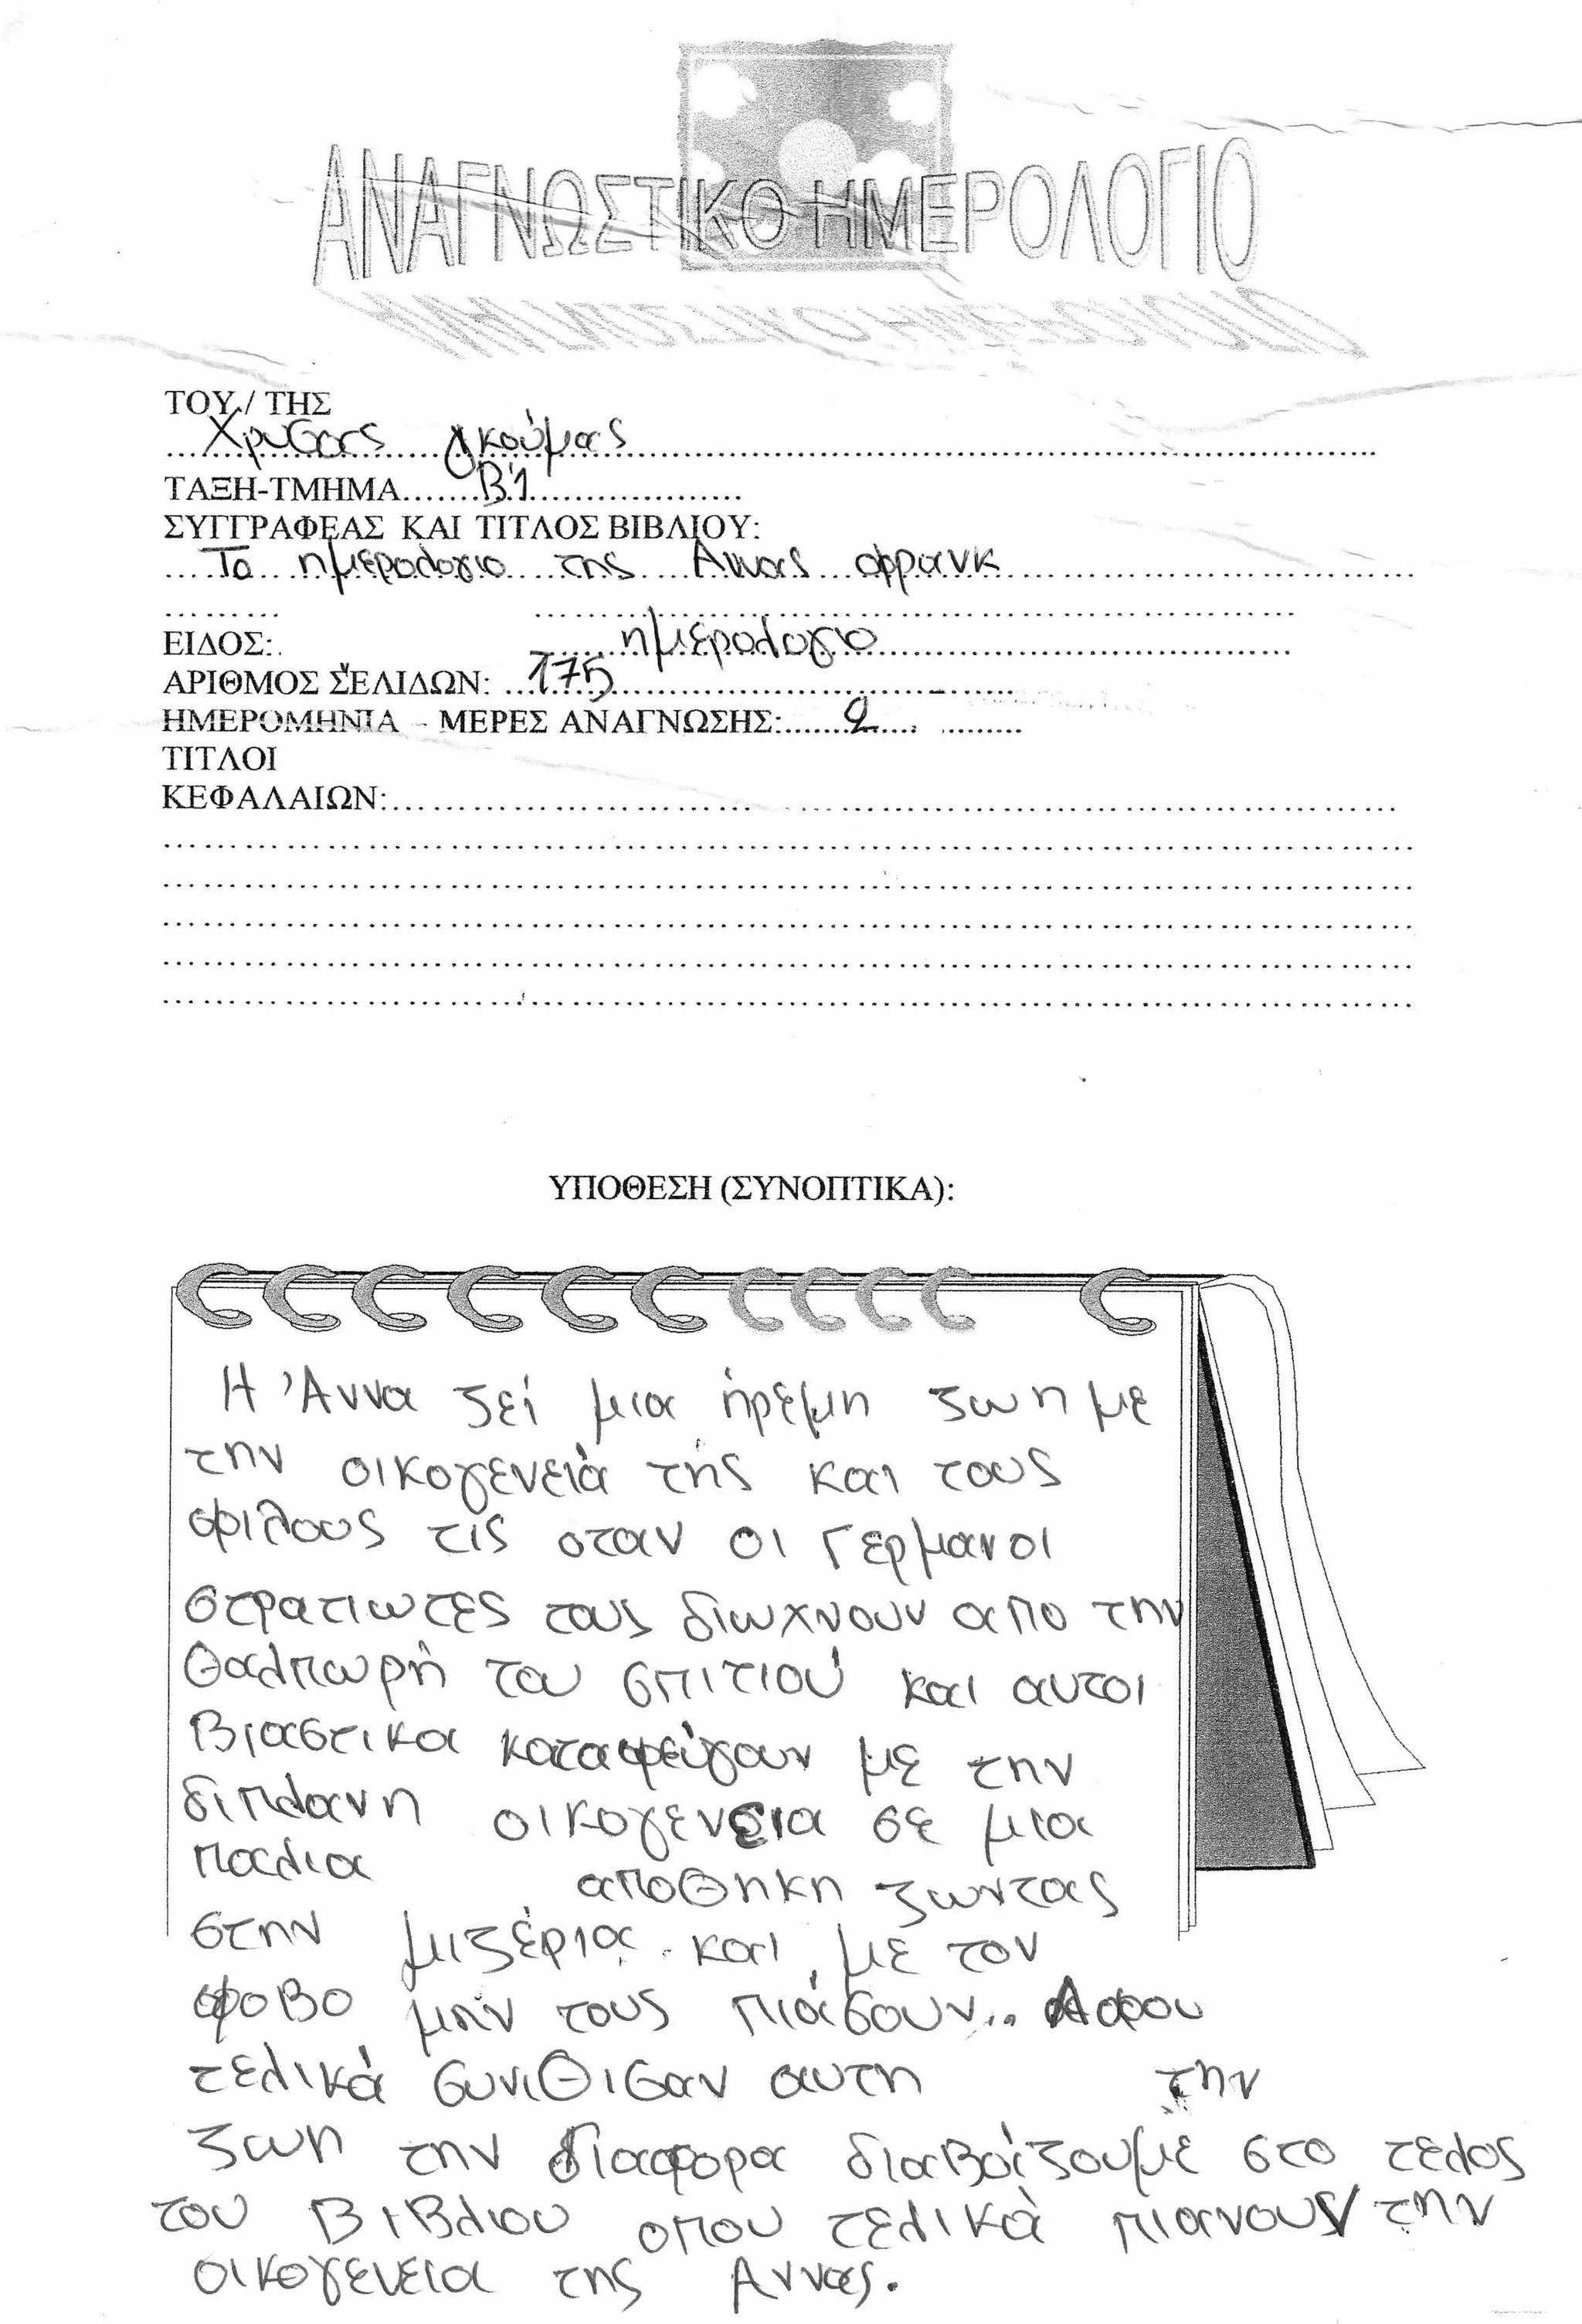 ΑΝΑΓΝΩΣΤΙΚΟ ΗΜΕΡΟΛΟΓΙΟ
ΤΟΥ / ΤΗΣ
Χρυσας γκούμας
ΤΑΞΗ-ΤΜΗΜΑ.......Β'1.....................
ΣΥΓΓΡΑΦΕΑΣ ΚΑΙ ΤΙΤΛΟΣ ΒΙΒΛΙΟΥ:
Το ημερολογιο της Αννας φρανκ
ΕΙΔΟΣ: ημερολογιο
ΑΡΙΘΜΟΣ ΣΕΛΙΔΩΝ: 175
ΗΜΕΡΟΜΗΝΙΑ - ΜΕΡΕΣ ΑΝΑΓΝΩΣΗΣ: 2
ΤΙΤΛΟΙ
ΚΕΦΑΛΑΙΩΝ:
ΥΠΟΘΕΣΗ (ΣΥΝΟΠΤΙΚΑ):
Η Άννα ζεί μια ήρεμη ζωη με
την οικογενειά τής και τους
φιλους τις οταν οι Γερμανοι
στρατιωτες τους διωχνουν απο την
θαλπωρή του σπιτιού και αυτοι
βιαστικα καταφεύγουν με την
διπλανη οικογενεια σε μια
παλια αποθηκη ζωντας
στην μιζέρια και με τον
φοβο μην τους πιάσουν... Αφου
τελικά συνιθισαν αυτη την
ζωη την διαφορα διαβάζουμε στο τελος
του βιβλιου οπου τελικά πιανουν την
οικογενεια της Αννας.